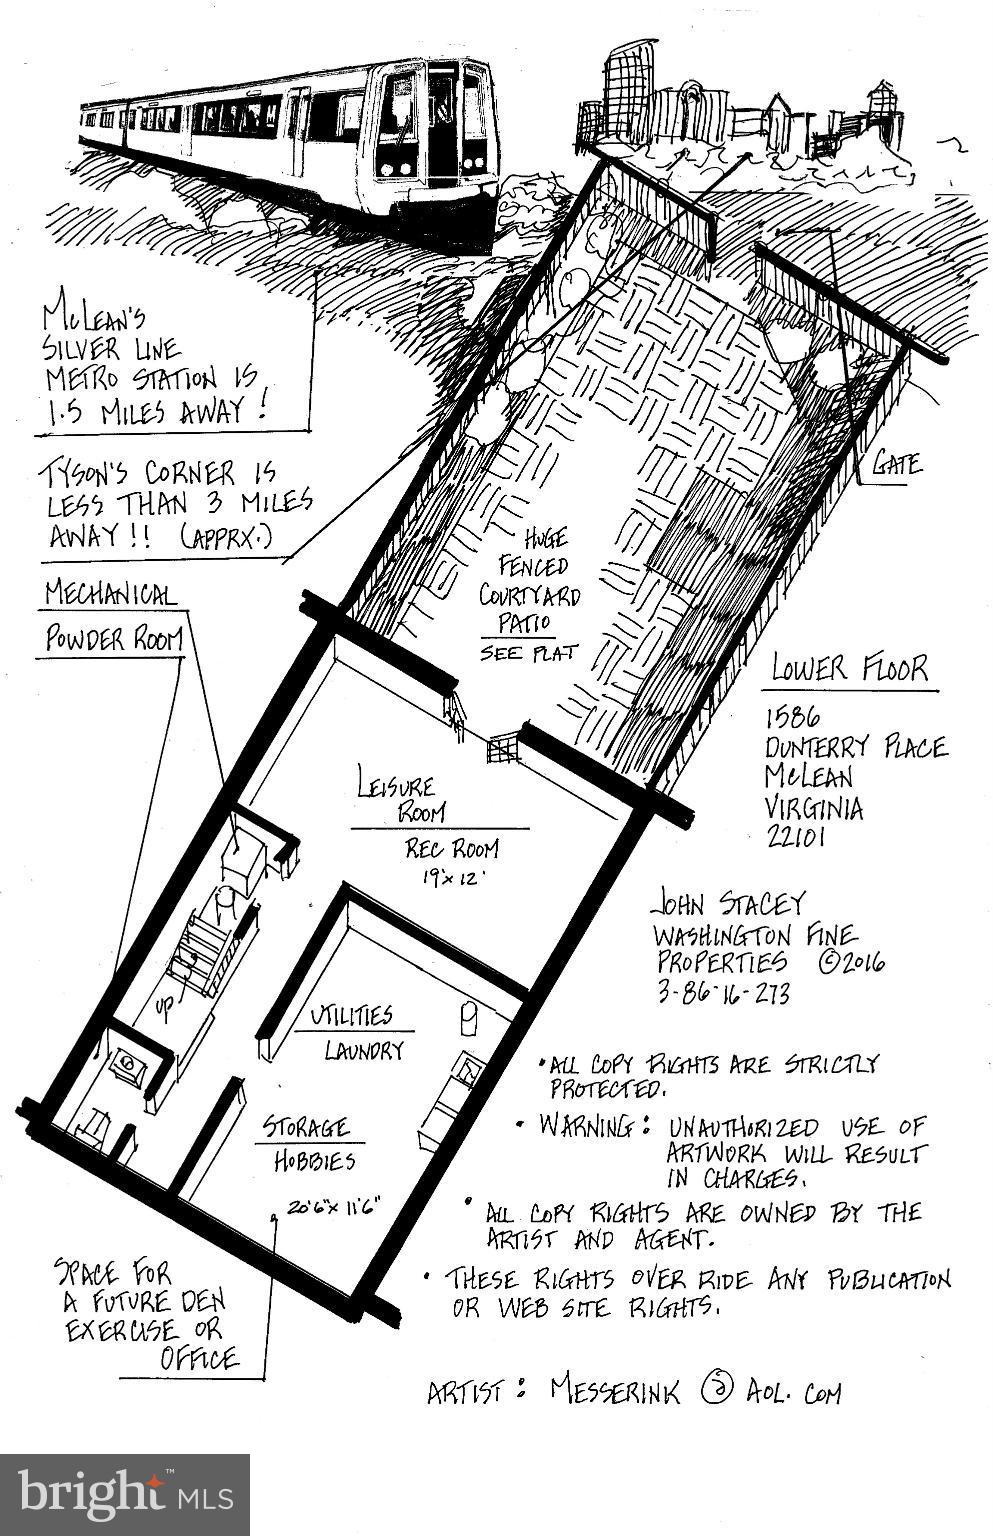 McLEAN'S
SILVER LINE
METRO STATION IS
1.5 MILES AWAY!
TYSON'S CORNER IS
LESS THAN 3 MILES
AWAY!! (APPRX.)
MECHANICAL
POWDER ROOM
GATE
HUGE
FENCED
COURTYARD
PATIO
SEE PLAT
LOWER FLOOR
1586
DUNTERRY PLACE
McLEAN
VIRGINIA
22101
LEISURE
ROOM
REC ROOM
19'x 12'
JOHN STACEY
WASHINGTON FINE
PROPERTIES ©2016
3-86-16-273
UP
UTILITIES
LAUNDRY
STORAGE
HOBBIES
20'6"x 11'6"
•ALL COPY RIGHTS ARE STRICTLY
PROTECTED.
• WARNING: UNAUTHORIZED USE OF
ARTWORK WILL RESULT
IN CHARGES.
• ALL COPY RIGHTS ARE OWNED BY THE
ARTIST AND AGENT.
• THESE RIGHTS OVER RIDE ANY PUBLICATION
OR WEB SITE RIGHTS.
SPACE FOR
A FUTURE DEN
EXERCISE OR
OFFICE
ARTIST: MESSERINK @ AOL.COM
bright™ MLS